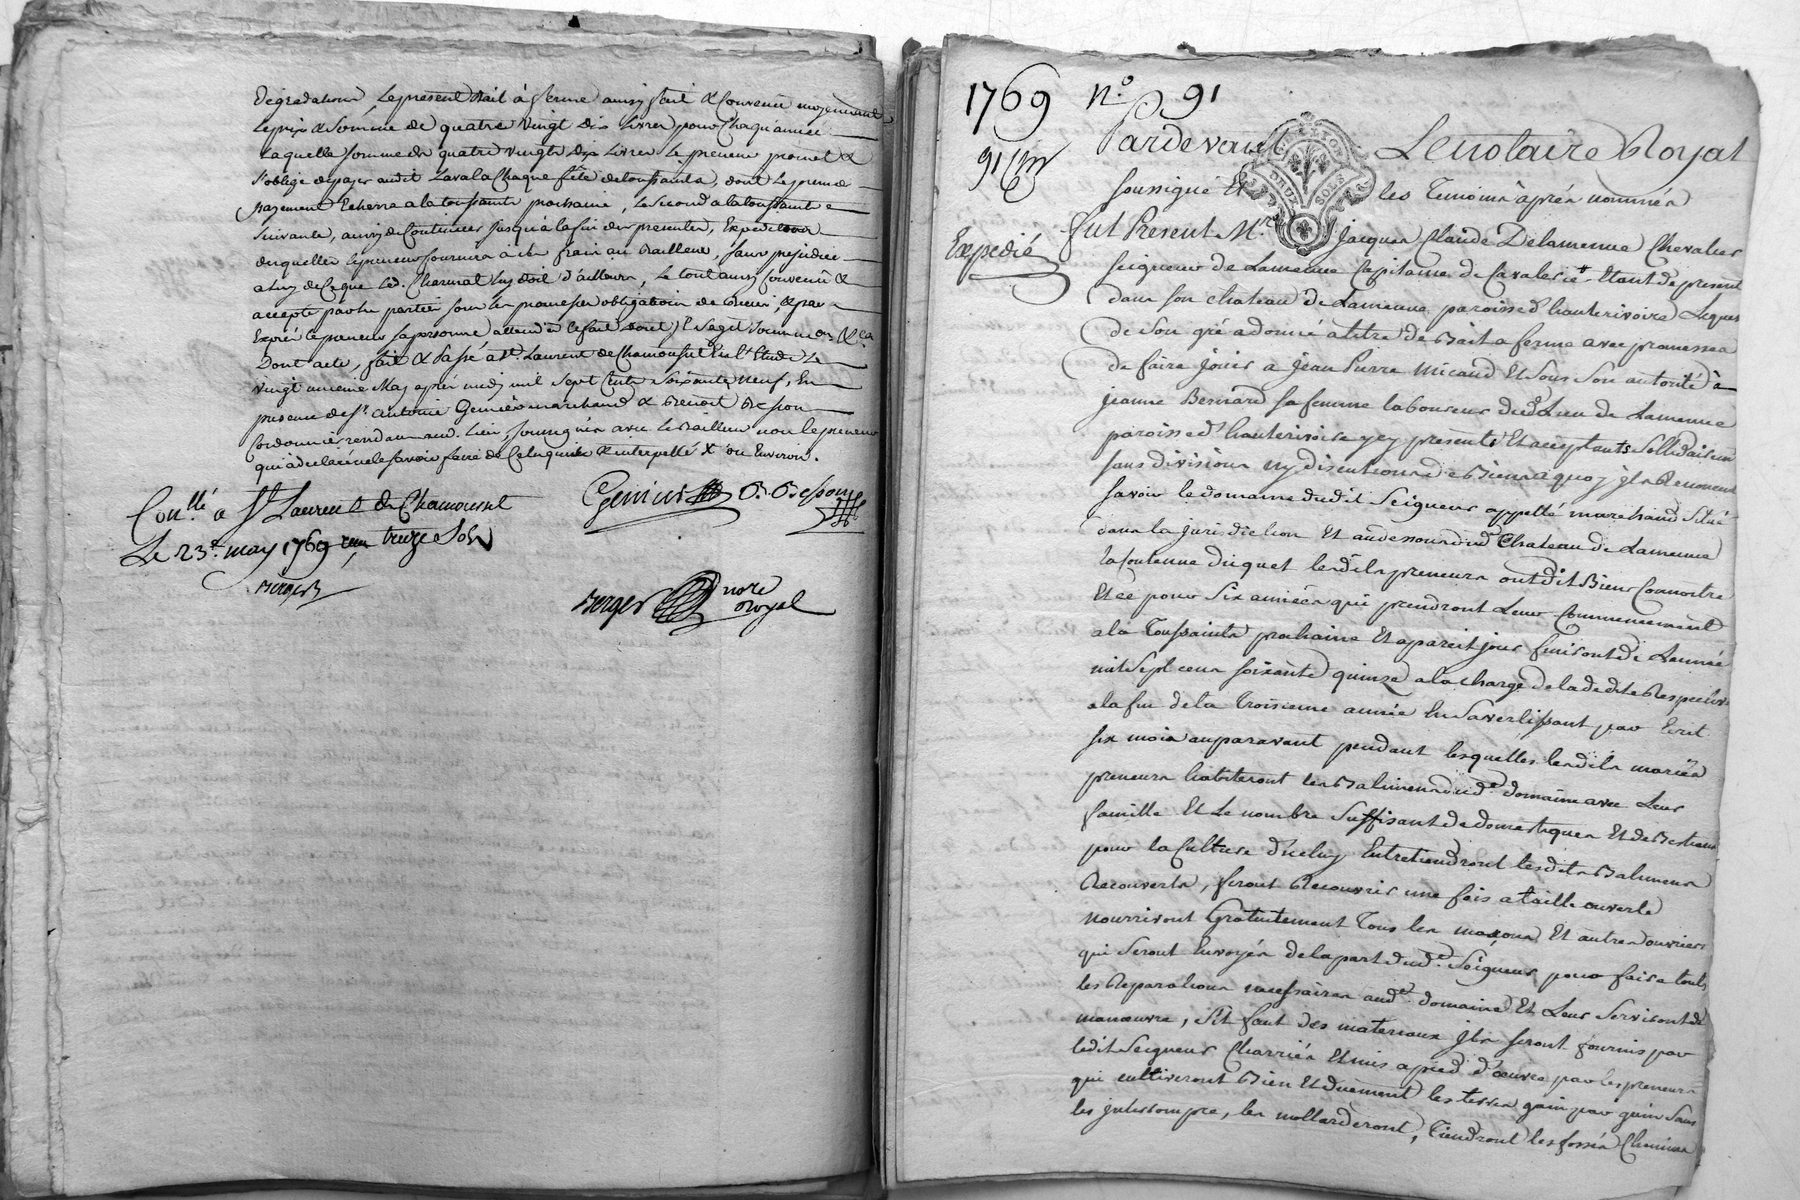 Dégradation, Le présent Bail à ferme ainsy fait & Convenu moyennant
le prix & Somme de quatre vingt dix Livres pour Chaqu'année
Laquelle somme de quatre vingts dix Livres Le preneur promet &
s'oblige de payer audit Laval a Chaque fête de toussaints, dont le premier
payement Echerra a la toussaints prochaine, le second a la toussaints
suivante, ainsy de Continuer jusqu'à la fin des presentes, Expedition
desquelles le preneur fournira a ses frais au Bailleur, sans prejudice
a luy de Ce que led. Charmat luy doit d'ailleurs, Le tout ainsy Convenu &
accepté par les parties sous les promesses obligations de Biens, & par
Exprés le preneur sa personne attendu le fait dont Il s'agit soumission &ca
Dont acte, fait & Passé a St. Laurent de Chamousset En l'Etude Le
vingt unieme May après midy mil sept Cents soixante neuf, En
presence de sr. antoine Geniers marchand & Benoit Besson
Cordonnier rendant aud. Lieu, soussignés avec le Bailleur non le preneur
qui a declaré ne le savoir faire de Ce Enquis & interpellé & ou Environ.
Con.llé a St Laurent de Chamousset
Le 23e. may 1769 treize Sols
Berger
Geniers B. Besson
Berger nore
Royal
1769 n.o 91
91
Expedié
Pardevant Le notaire Royal
soussigné Et les Temoins après nommés
fut Present Mre Jacques Claude Delamenue Chevalier
seigneur de Lamenue Capitaine de Cavalerie Etant de present
dans son chateau de Lamenue, paroisse d'hauterivoire Lequel
de son gré a donné a titre de Bail a ferme avec promesses
de faire jouir a Jean Pierre Micaud Et sous son autorité à
jeanne Bernard sa femme laboureurs dud. Lieu de Lamenue
paroisse d'hauterivoire y cy presents Et acceptants Sollidairement
sans division ny discution de Biens a quoy ils Renoncent
savoir le domaine dudit Seigneur appellé marchand situé
dans la jurisdiction Et audessous dud. Chateau de Lamenue
La Contenue duquel lesdits preneurs ont dit Bien Connoitre
Et ce pour Six années qui prendront Leur Commencement
a la Toussaints prochaine Et a pareil jour finiront de L'année
mil sept cens soixante quinze a la charge de la dedite Respective
a la fin de la Troisieme année En s'avertissant par Ecrit
six mois auparavant pendant lesquelles lesdits mariés
preneurs habiteront les Batimens dud. domaine avec Leur
famille Et Le nombre suffisant de domestiques Et de Bestiaux
pour la Culture d'iceluy Entretiendront lesdits Batimens
Recouverts, feront Recouvrir une fois a taille ouverte
nourriront Gratuitement Tous les maçons Et autres ouvriers
qui seront Envoyés de la part dud. Seigneur pour faire toutes
les Reparations necessaires aud. domaine Et Leur serviront de
manœuvre, s'il faut des materiaux ils seront fournis par
ledit Seigneur Charriés Et mis a pied d'œuvre par les preneurs
qui cultiveront Bien Et duement les terres gain par gain sans
les interrompre, les mollarderont, Tiendront les fossés Chemins